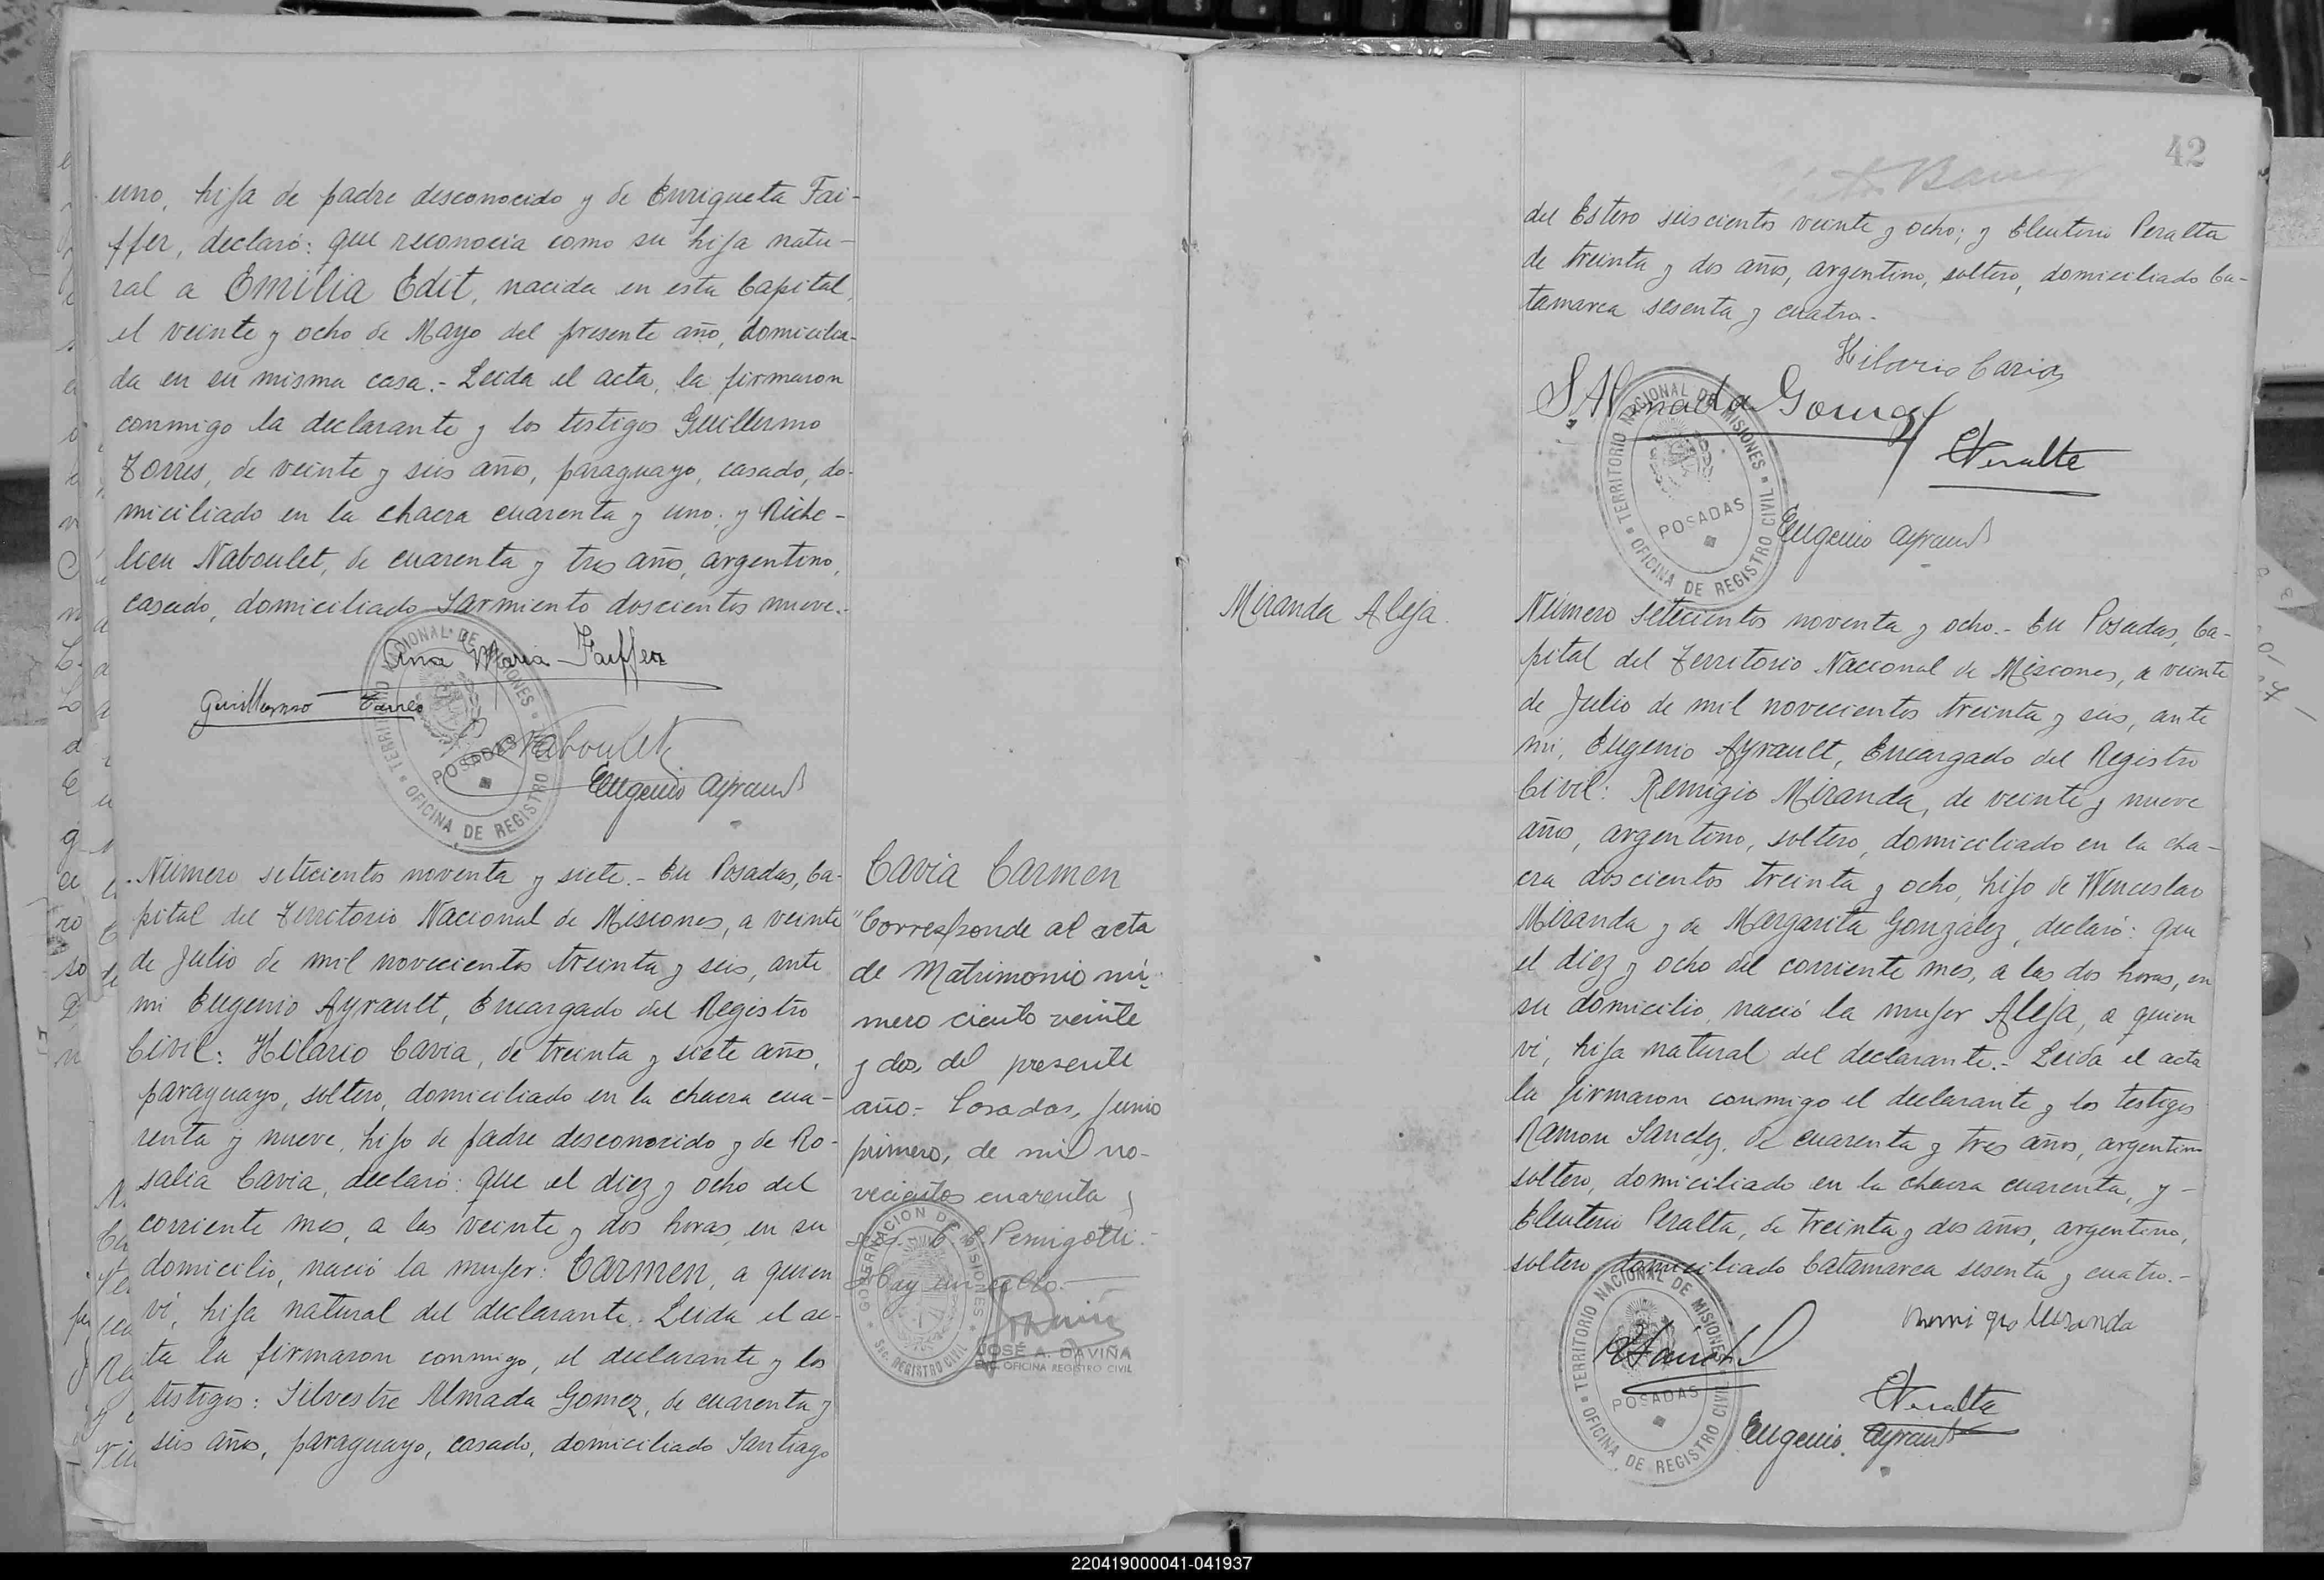 uno, hija de padre desconocido y de Enriqueta Fai-
ffer, declaró: que reconocia como su hija natu-
ral a Emilia Edit, nacida en esta Capital,
el veinte y ocho de Mayo del presente año, domicilia-
da en su misma casa.- Leida el acta, la firmaron
conmigo la declarante y los testigos Guillermo
Torres, de veinte y seis años, paraguayo, casado, do-
miciliado en la chacra cuarenta y uno; y Riche-
lieu Naboulet, de cuarenta y tres años, argentino,
casado, domiciliado Sarmiento doscientos nueve.-
Ana Maria Faiffer
Guillermo Torres
Naboulet
Eugenio Ayrault
TERRITORIO NACIONAL DE MISIONES
POSADAS
OFICINA DE REGISTRO CIVIL
Número setecientos noventa y siete.- En Posadas, Ca-
pital del Territorio Nacional de Misiones, a veinte
de Julio de mil novecientos treinta y seis, ante
mi Eugenio Ayrault, Encargado del Registro
Civil: Hilario Cavia, de treinta y siete años,
paraguayo, soltero, domiciliado en la chacra cua-
renta y nueve, hijo de padre desconocido y de Ro-
salia Cavia, declaró: que el diez y ocho del
corriente mes, a las veinte y dos horas, en su
domicilio, nació la mujer: Carmen, a quien
vi, hija natural del declarante. Leida el ac-
ta la firmaron conmigo, el declarante y los
testigos: Silvestre Almada Gomez, de cuarenta y
seis años, paraguayo, casado, domiciliado Santiago
Cavia Carmen
"Corresponde al acta
de Matrimonio nú-
mero ciento veinte
y dos del presente
año.- Posadas, Junio
primero, de mil no-
vecientos cuarenta y
Pernigotti.-
Hay un sello.-
GOBERNACION DE MISIONES
SEC. REGISTRO CIVIL
JOSÉ A. DAVIÑA
OFICINA REGISTRO CIVIL
42
del Estero seiscientos veinte y ocho; y Eleuterio Peralta
de treinta y dos años, argentino, soltero, domiciliado Ca-
tamarca sesenta y cuatro.-
Hilario Cavia
S. Almada Gomez
E Peralta
Eugenio Ayrault
TERRITORIO NACIONAL DE MISIONES
POSADAS
OFICINA DE REGISTRO CIVIL
Miranda Aleja.
Número setecientos noventa y ocho.- En Posadas, Ca-
pital del Territorio Nacional de Misiones, a veinte
de Julio de mil novecientos treinta y seis, ante
mi, Eugenio Ayrault, Encargado del Registro
Civil: Remigio Miranda, de veinte y nueve
años, argentino, soltero, domiciliado en la cha-
cra doscientos treinta y ocho, hijo de Wenceslao
Miranda y de Margarita González, declaró: que
el diez y ocho del corriente mes, a las dos horas, en
su domicilio, nació la mujer Aleja, a quien
vi, hija natural del declarante.- Leida el acta
la firmaron conmigo el declarante y los testigos
Ramon Sanchez, de cuarenta y tres años, argentino
soltero, domiciliado en la chacra cuarenta, y-
Eleuterio Peralta, de treinta y dos años, argentino,
soltero, domiciliado Catamarca sesenta y cuatro.-
Remigio Miranda
R Sanchez
E Peralta
Eugenio Ayrault
TERRITORIO NACIONAL DE MISIONES
POSADAS
OFICINA DE REGISTRO CIVIL
220419000041-041937